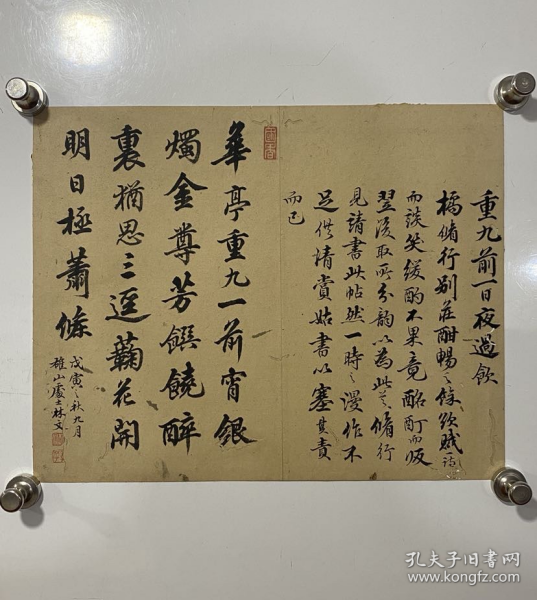 重九前一日夜過飲
橘脩行别莊酣暢之餘欲賦一詩
而談笑緩酌不果竟酩酊而皈
翌後取所分韵以為此上脩行
見請書此帖然一時之漫作不
足供清賞姑書以塞其責
而已
華亭重九一前宵銀
燭金尊芳饌饒醉
裏猶思三逕蘜花開
明日極蕭條
戊寅之秋九月
雄山處士林文
孔夫子旧书网
www.kongfz.com